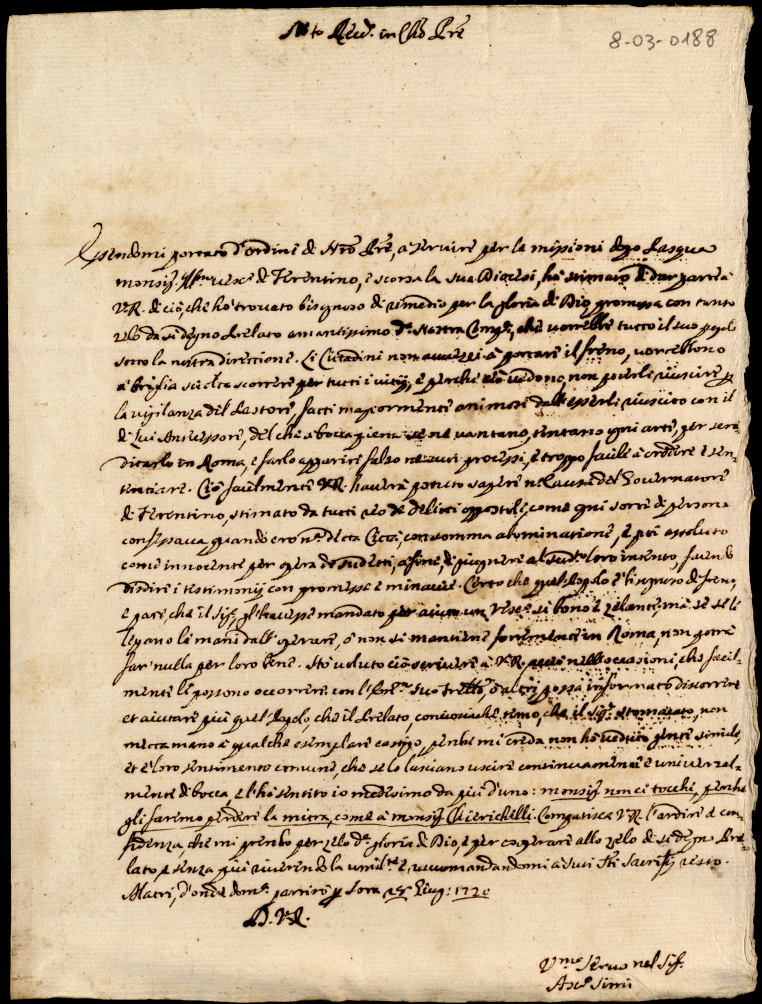 Mto Revd. in Chro Pre
8-03-0188
Essendomi portato d'ordine di Nro Pre, a servire per le missioni dopo Pasqua
monsig. Vescº di Ferentino, e scorsa la sua Diocesi, ho stimato di dar parte à
V.R. di ciò, che hò trovato bisognoso di rimedio per la gloria di Dio promossa con tanto
zelo da sì degno Prelato amantissimo dª. Nostra Compª, che vorrebbe tutto il suo popolo
sotto la nostra direttione. Li Cittadini non avvezzi à portare il freno, vorrebbono
à briglia sciolta scorrere per tutti i vitij, e perche ciò vedono, non poterli riuscire p
la vigilanza del Pastore, fatti magiormente animosi dall'esserli riuscito con il
di lui Antecessore, del che à bocca piena se ne vantano, tentano ogni arte, per scre-
ditarlo in Roma, e farlo apparire falso ne suoi processi, e troppo facile à credere e sen-
tentiare. Ciò facilmente V.R. haverà potuto sapere nella causa del Governatore
di Ferentino, stimato da tutti reo de delitti oppostoli, come ogni sorte di persona
confessava, quando ero nª. detta Città, con somma abominatione, e poi assoluto
come innocente per opera de sudetti, à fine, di giugnere al sudº loro intento, facendo
disdire i testimonij con promesse e minaccie. Certo che quel Popolo è bisognoso di freno,
e pare, che il Sigr. gl'havesse mandato per aiuto un Vescº sì bono e zelante, mà se se li
legano le mani dall'operare, ò non si mantiene fortemente in Roma, non potrà
far nulla per loro bene. Hò voluto ciò scrivere à V.R. nelle occasioni, che facil-
mente li possono occorrere con l' suo fratello, ò altri possa informato discorrere
et aiutare più quel Popolo, che il Prelato, temo, che il Sigr. stomacato, non
metta mano à qualche esemplare castigo, perche mi creda non hò veduto gente simile,
et è loro sentimento comune, che se lo lasciano uscire continuamente e universal-
mente di bocca, e l'hò sentito io medesimo da più d'uno: monsigr non ci tocchi, perche
gli faremo perdere la mitra, come à monsigr. Compatisca V.R. l'ardire e con-
fidenza, che mi prendo per zelo dª. gloria di Dio, e per cooperare allo zelo di sì degno Pre-
lato, e senza più riverendola umilte, e raccomandandomi à suoi Sti Sacrifij resto.
Alatri, d'onde domª. partirò p Sora Giug: 1720
D. V.R.
Vmo Servo nel Sigr.
Simii